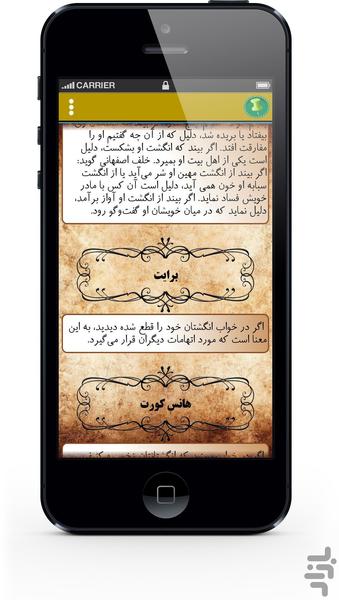 CARRIER
بیفتاد یا بریده شد، دلیل که از آن چه گفتیم او را
مفارقت افتد. اگر بیند که انگشت او بشکست، دلیل
است یکی از اهل بیت او بمیرد. خلف اصفهانی گوید:
اگر بیند از انگشت مهین او شر می‌آید یا از انگشت
سبابه او خون همی آید، دلیل است آن کس با مادر
خویش فساد نماید. اگر بیند از انگشت او آواز برآمد،
دلیل نماید که در میان خویشان او گفت‌وگو رود.
برایت
اگر در خواب انگشتان خود را قطع شده دیدید، به این
معنا است که مورد اتهامات دیگران قرار می‌گیرد.
هانس کورت
بازار